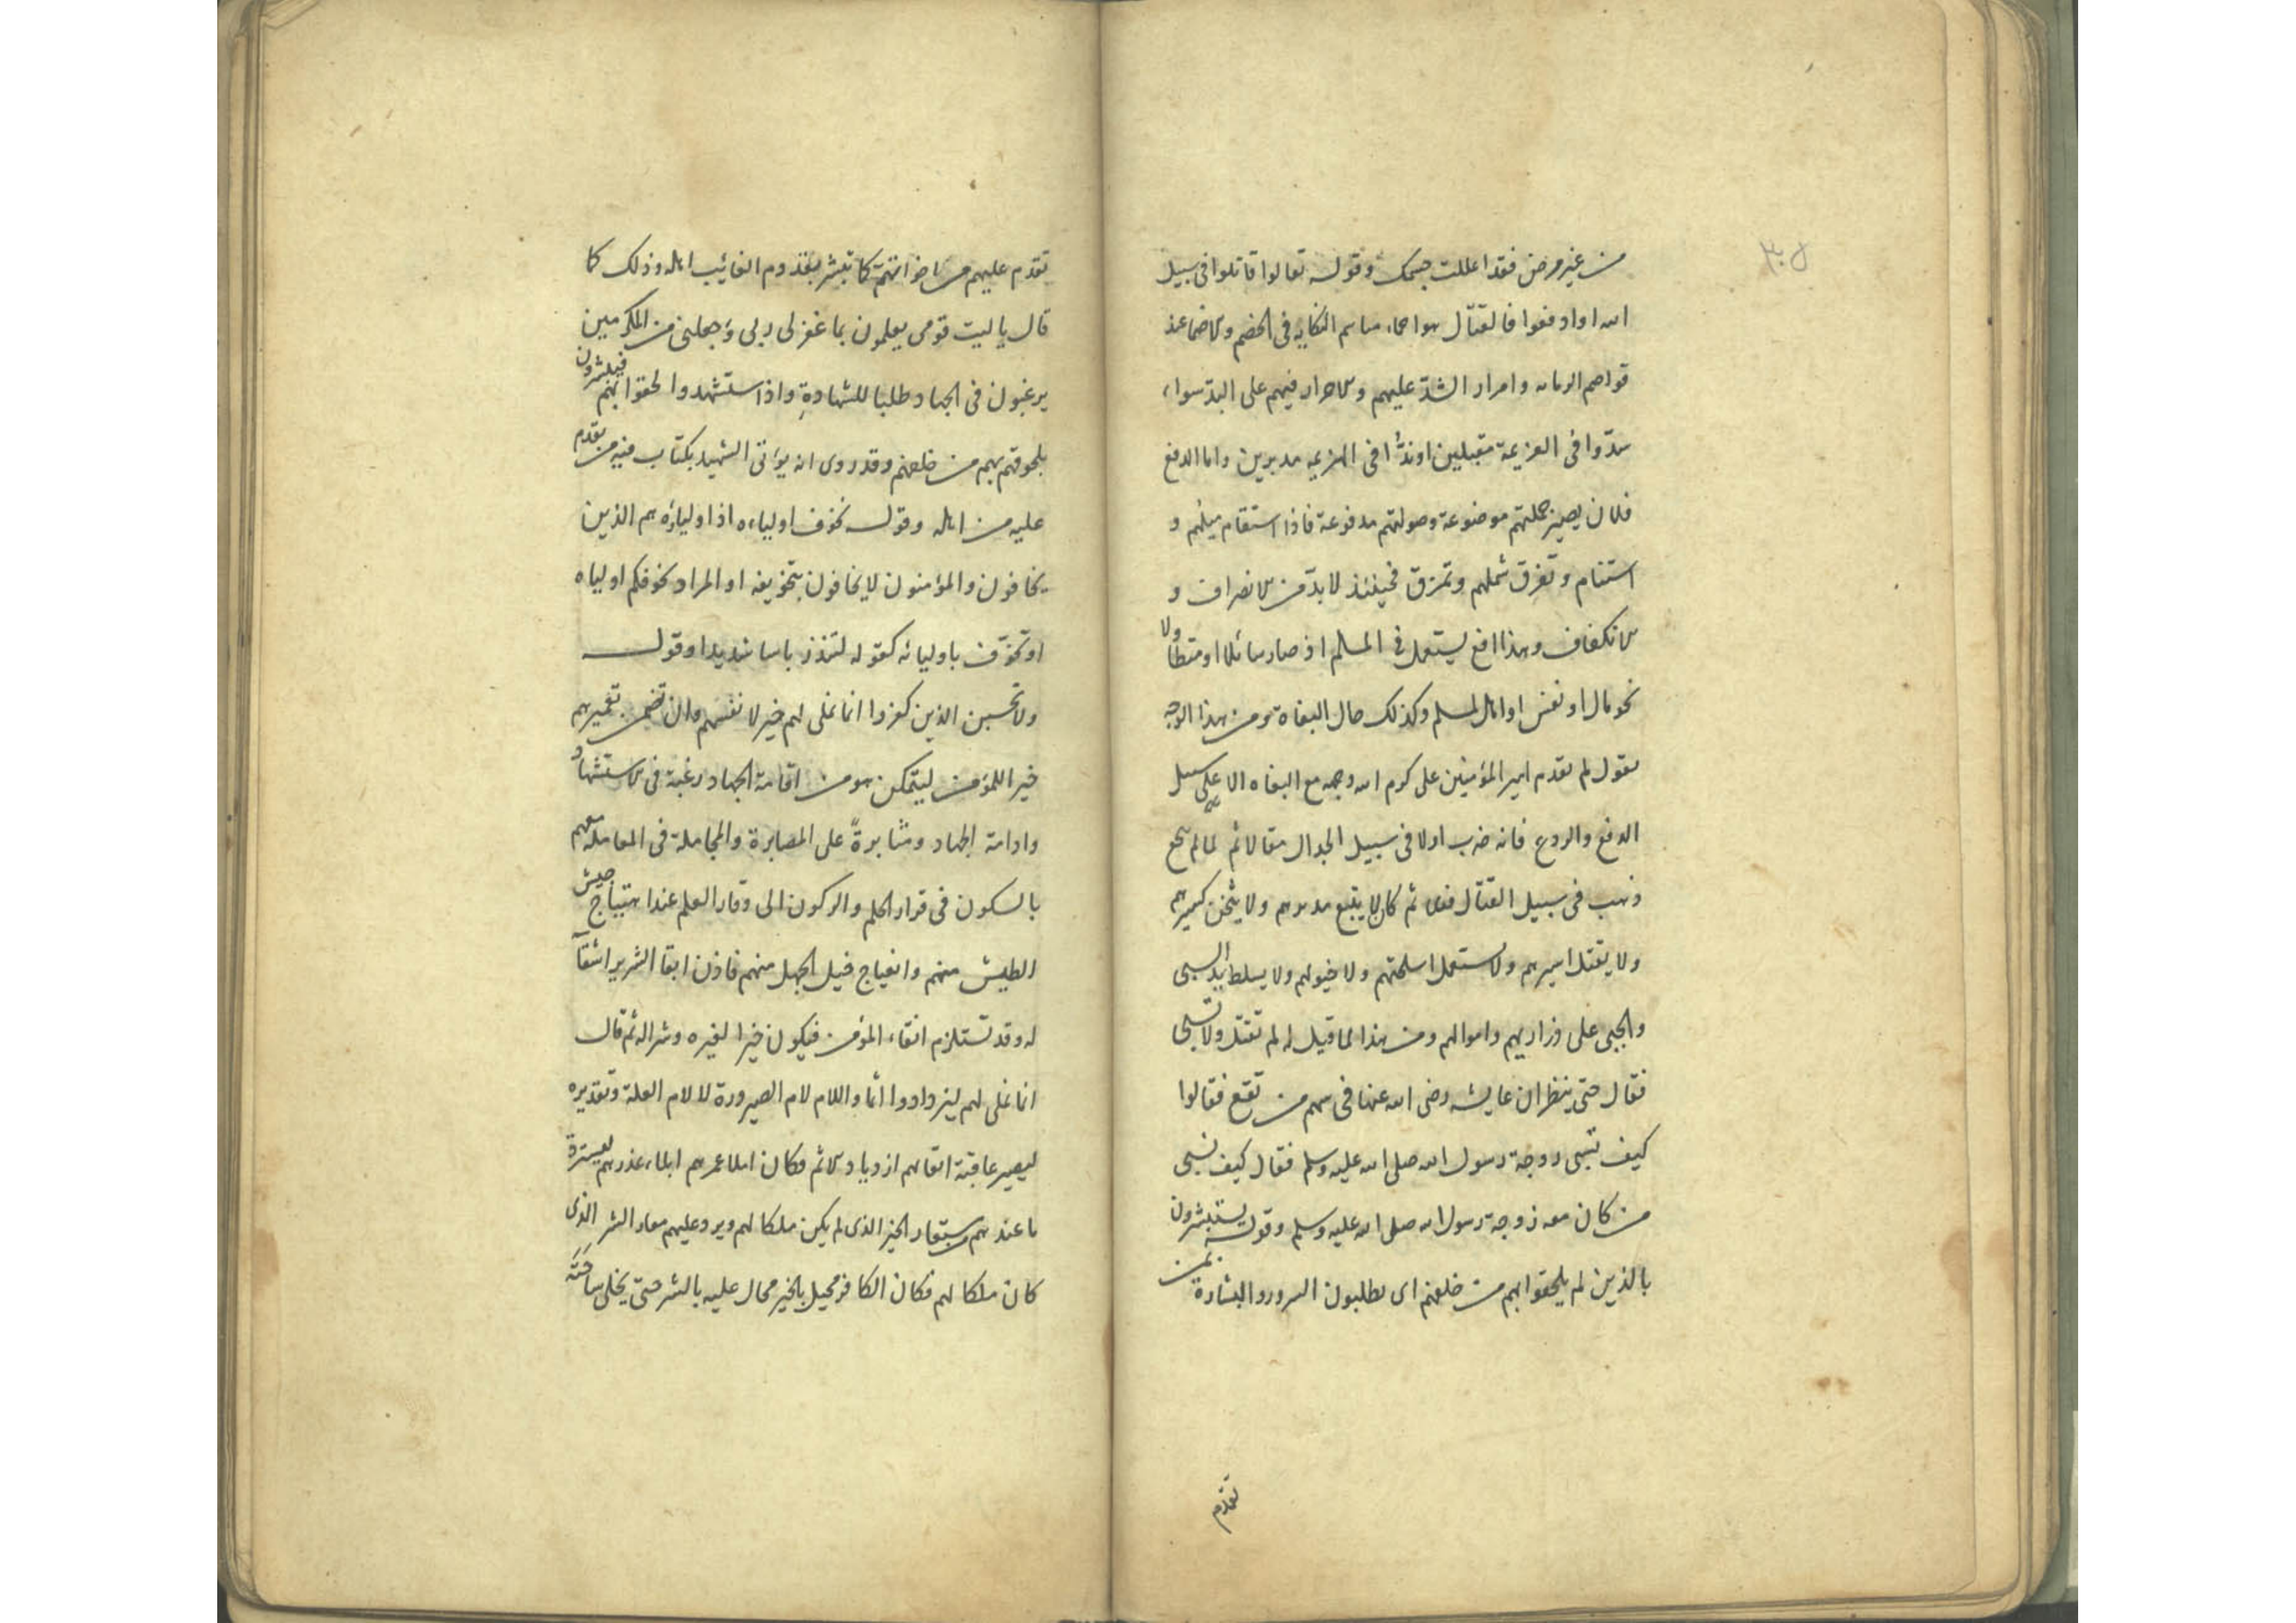 ٣٠٨
من غير مرض فقد اعللت جسمك وقوله تعالوا قاتلوا فى سبيل
الله او ادفعوا فالقتال هو النكايه فى الخصم عند
وامرار الشدّ عليهم فيهم على البدّ سواء
فى العزيمة مقبلين او فى الهزيمه مدبرين واما الدفع
فلان يصير حملتهم موضوعة وصولتهم مدفوعة فاذا استقام ميلهم و
استنام وتفرق شملهم وتمزق فحينئذ لا بدّ من الانصراف و
الانكفاف وهذا يستعمل فى المسلم اذ صار صائلا او متطاولا
نحو مال او نفس او اهل لمسلم وكذلك حال البغاة ومن هذا الوجه
نقول لم يقدم امير المؤمنين على كرم الله وجهه مع البغاه الا على سبيل
الدفع والردع فانه ضرب اولا فى سبيل الجدال مقالا ثم لما لم ينجع
ذهب فى سبيل القتال ثم كان لا يتبع مدبرهم ولا يثخن كسيرهم
ولا يقتل اسيرهم ولا يستعمل اسلحتهم ولا خيولهم ولا يسلط يد السبى
والجبى على ذراريهم واموالهم ومن هذا لما قيل له لم تقتل ولا تسبى
فقال حتى ينظر ان عايشه رضى الله عنها فى سهم من تقع فقالوا
كيف تسبى زوجة رسول الله صلى الله عليه وسلم فقال كيف نسبى
من كان معه زوجة رسول الله صلى الله عليه وسلم وقوله يستبشرون
بالذين لم يلحقوا بهم من خلفهم اى يطلبون السرور والبشارة بمن
تقدّم
تقدم عليهم من اخوانهم كما تبشر بقدوم الغائب اهله وذلك كما
قال يا ليت قومى يعلمون بما غفر لى ربى وجعلنى من المكرمين
يرغبون فى الجهاد طلبا للشهادة واذا استشهدوا لحقوا بهم فيبشرون
بلحوقهم بهم من خلفهم وقد روى انه يؤتى الشهيد بكتاب فيه من تقدم
عليه من اهله وقوله يخوف اولياءه اذا اولياؤه هم الذين
يخافون والمؤمنون لا يخافون بتخويفه او المراد يخوفكم اولياه
او يخوّف باوليائه كقوله لتنذر باسا شديدا وقوله
ولا تحسبن الذين كفروا انما نملى لهم خير لانفسهم وان تضمن تعميرهم
خيرا للمؤمن ليتمكن هو من اقامة الجهاد رغبة فى الاستشهاد
وادامة الجهاد ومثابرةً على المصابرة والمجاملة فى المعاملة معهم
بالسكون فى قرار الحلم والركون الى وقار العلم عند اهتياج جيش
الطيش منهم وانهياج فيل الجهل منهم فاذن ابقا الشرير اشقآ
له وقد تستلزم انقاء المؤمن فيكون خيرا لغيره وشرا له ثم قال
انما نملى لهم ليزدادوا اثما واللام لام الصيرورة لا لام العلة وتقديره
ليصير عاقبة ابقاهم ازدياد الاثم فكان املا عمرهم ابلاء عذرهم ليسترد
ما عندهم مستعار الخير الذى لم يكن ملكا لهم ويرد عليهم معار الشر الذى
كان ملكا لهم فكان الكافر محيل بالخير محال عليه بالشر حتى يخلى ساحته